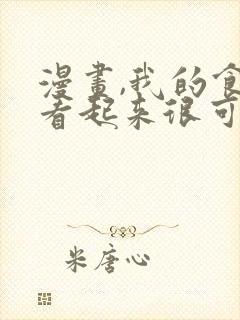 漫畫,我的食
看起來很可
米唐心